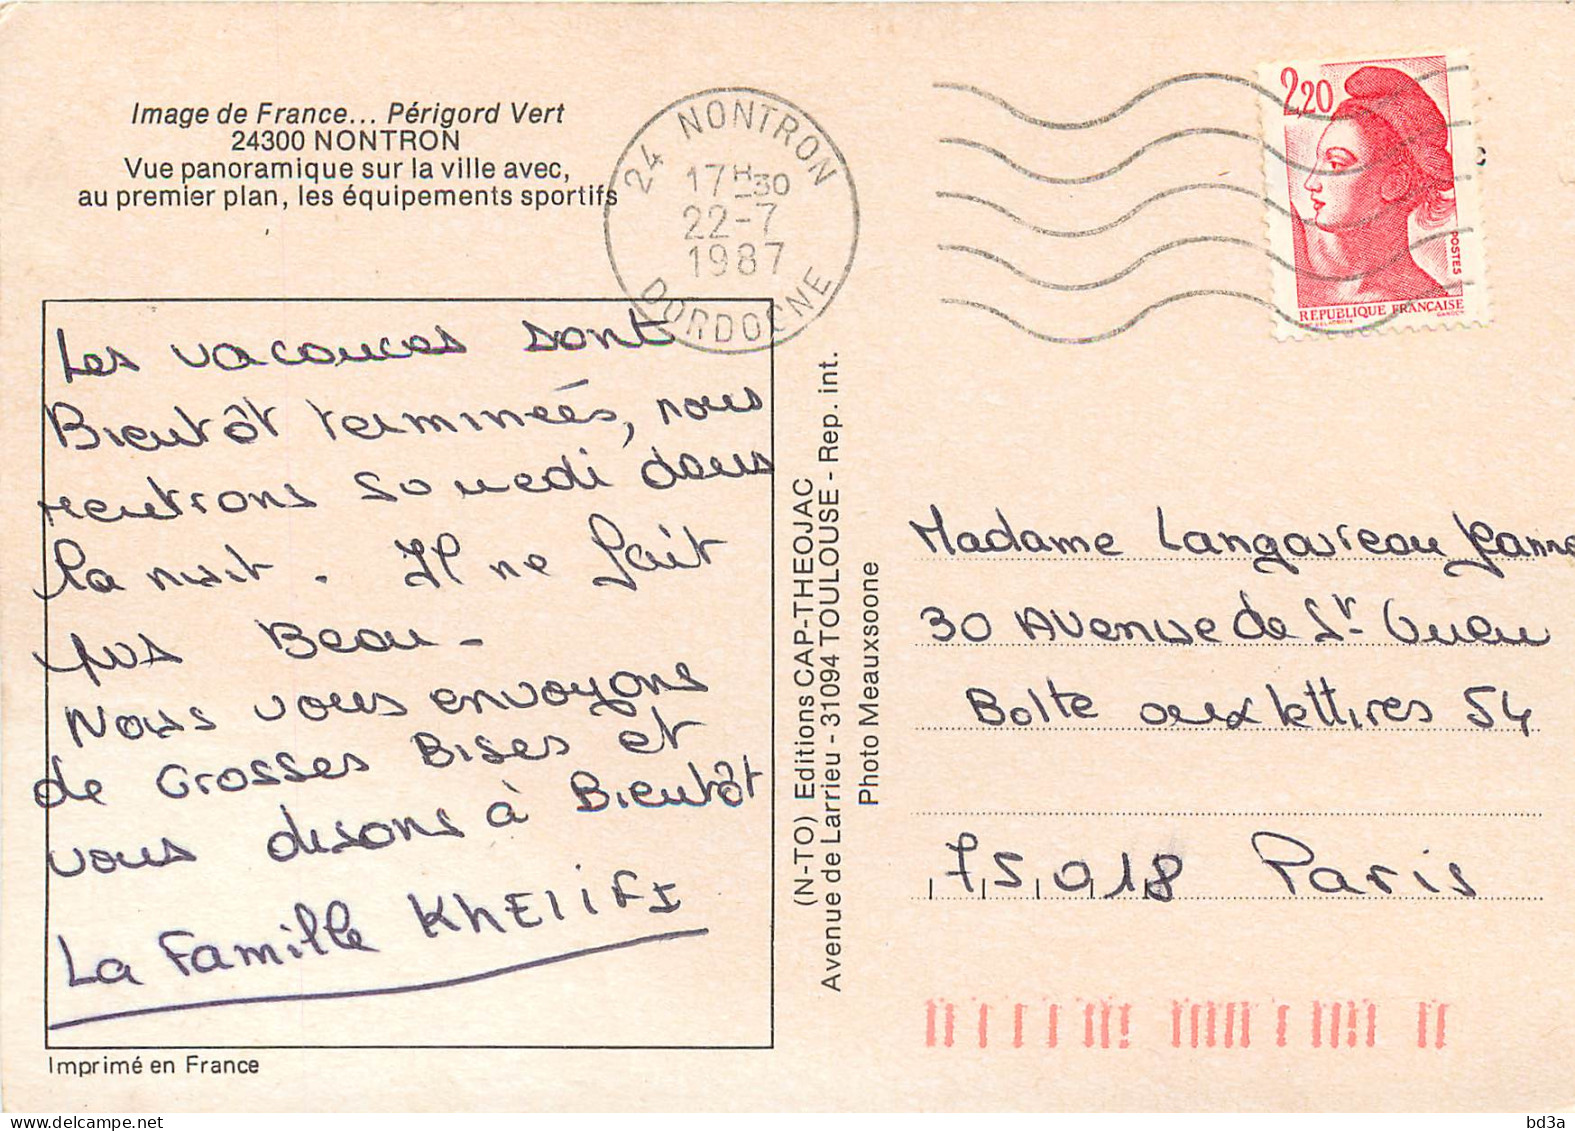 Image de France... Périgord Vert
24300 NONTRON
Vue panoramique sur la ville avec,
au premier plan, les équipements sportifs
24 NONTRON
17H30
22-7
1987
DORDOGNE
2,20
POSTES
REPUBLIQUE FRANÇAISE
Les vacances sont
Bientôt terminées, nous
rentrons samedi dans
la nuit. Il ne fait
pas Beau-
Nous vous envoyons
de Grosses Bises et
vous disons à Bientôt
La Famille KhElifI
Imprimé en France
(N-TO) Editions CAP-THEOJAC
Avenue de Larrieu - 31094 TOULOUSE - Rep. int.
Photo Meauxsoone
Madame Langavreau Jeanne
30 Avenue de St Ouen
Boîte aux lettres 54
75018 Paris
bd3a